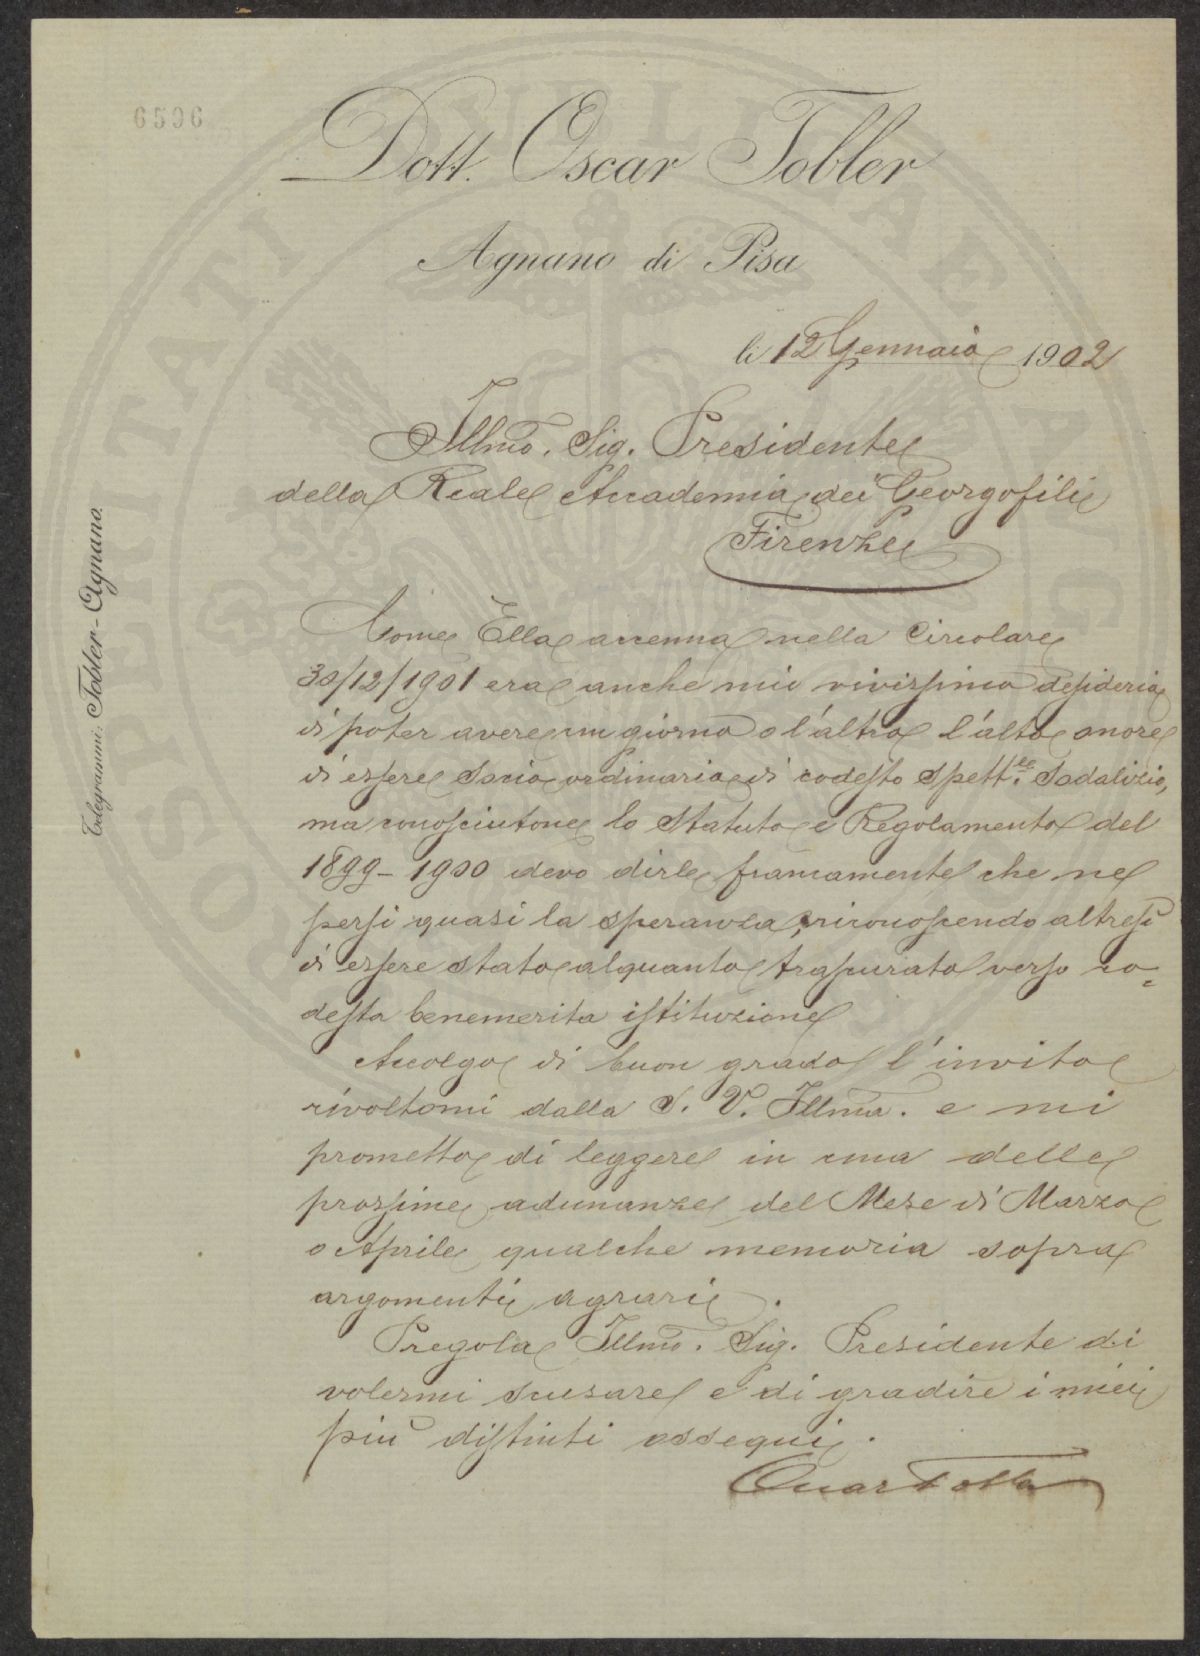 6596
Dott. Oscar Tobler
Agnano di Pisa
li 12 Gennaio 1902
Illmo. Sig. Presidente
della Reale Accademia dei Georgofili
Firenze
Telegrammi: Tobler-Agnano.
Come Ella accenna nella Circolare
30/12/1901 era anche mio vivissimo desiderio
di poter avere un giorno o l'altro l'alto onore
di essere Socio ordinario di codesto Spett.le Sodalizio,
ma conosciutone lo Statuto e Regolamento del
1899-1900 devo dirle francamente che ne
persi quasi la speranza, riconoscendo altresì
di essere stato alquanto trascurato verso co=
desta benemerita istituzione
Accolgo di buon grado l'invito
rivoltomi dalla S. V. Illma. e mi
prometto di leggere in una delle
prossime adunanze del Mese di Marzo
o Aprile qualche memoria sopra
argomenti agrari.
Pregola Illmo. Sig. Presidente di
volermi scusare e di gradire i miei
più distinti ossequi.
Oscar Tobler
SOSPITATI PUBLICAE AUG